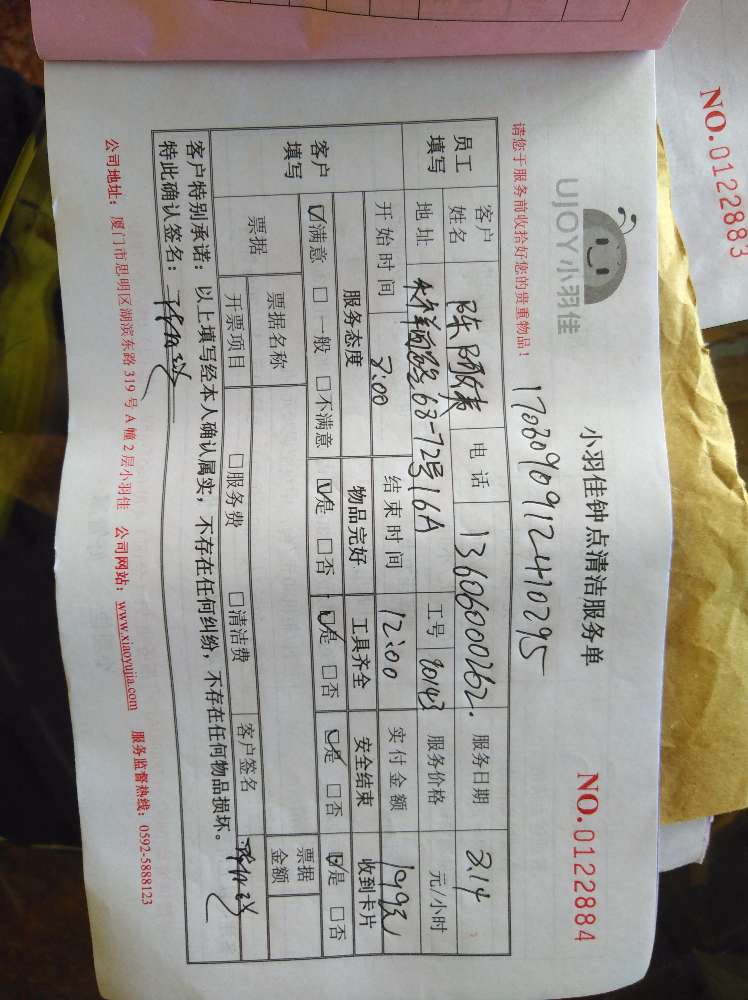 NO.0122883
UJOY小羽佳
小羽佳钟点清洁服务单
NO.0122884
请您于服务前收拾好您的贵重物品！
员工填写
客户姓名 陈 电话 13606000262. 服务日期 3.14
地址 68-72号16A 工号 90143 服务价格 元/小时
开始时间 8:00 结束时间 12:00 实付金额
客户填写
服务态度 物品完好 工具齐全 安全结束 收到卡片
☑满意 □一般 □不满意 ☑是 □否 ☑是 □否 ☑是 □否 ☑是 □否
票据 票据名称 票据金额
开票项目 □服务费 □清洁费 客户签名
客户特别承诺：以上填写经本人确认属实，不存在任何纠纷，不存在任何物品损坏。
特此确认签名：
公司地址：厦门市思明区湖滨东路319号A幢2层小羽佳 公司网站：www.xiaoyujia.com 服务监督热线：0592-5888123